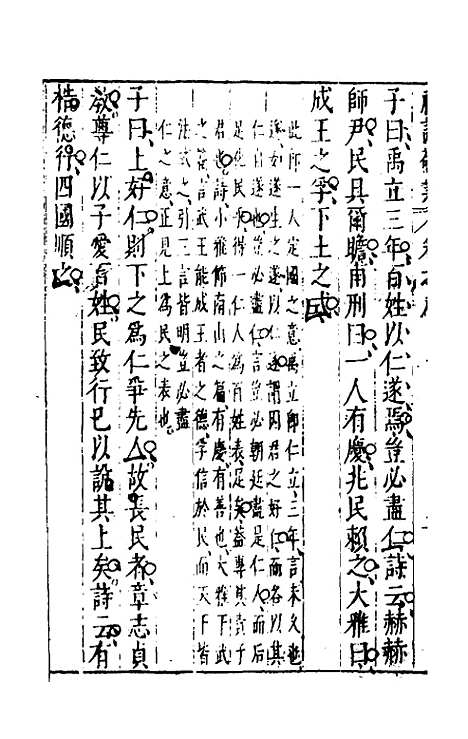 子曰禹立三年百姓以仁遂焉豈必盡仁詩云赫赫
師尹民具爾瞻甫刑曰一人有慶兆民賴之大雅曰
成王之孚下土之式
此即一人定國之意禹立即仁立三年言未久也
遂如遂生之遂以仁遂謂因君之好仁而各以其
仁自遂也豈必盡仁言豈必朝廷盡是仁人而后
足使民乎得一仁人為百姓表足矣蓋專其責于
君也詩小雅節南山之篇有慶有善也大雅下武
之篇言武王能成王者之德孚信於民而天下皆
法式之引三言皆明豈必盡
仁之意正見上為民之表也
子曰上好仁則下之為仁爭先人故長民者章志貞
教尊仁以子愛百姓民致行已以說其上矣詩云有
梏德行四國順之